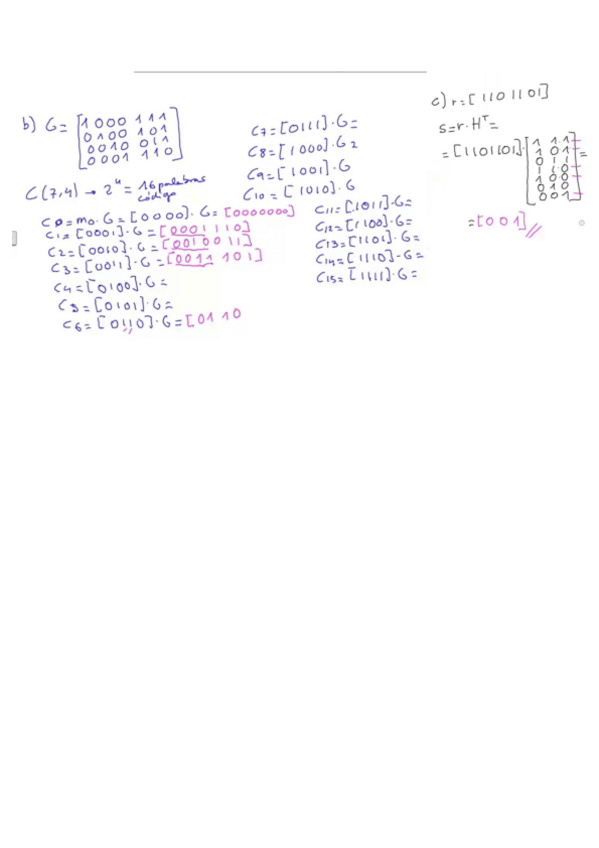 b) G = [1 0 0 0 1 1 1
0 1 0 0 1 0 1
0 0 1 0 0 1 1
0 0 0 1 1 1 0]
C(7,4) → 2⁴ = 16 palabras código
C0 = m0 · G = [0000] · G = [0000000]
C1 = [0001] · G = [0001110]
C2 = [0010] · G = [0010011]
C3 = [0011] · G = [0011101]
C4 = [0100] · G =
C5 = [0101] · G =
C6 = [0110] · G = [0110
C7 = [0111] · G =
C8 = [1000] · G =
C9 = [1001] · G
C10 = [1010] · G
C11 = [1011] · G =
C12 = [1100] · G =
C13 = [1101] · G =
C14 = [1110] · G =
C15 = [1111] · G =
c) r = [1101101]
S = r · Hᵀ =
= [1101101] · [1 1 1
1 0 1
0 1 1
1 1 0
1 0 0
0 1 0
0 0 1] =
= [001]